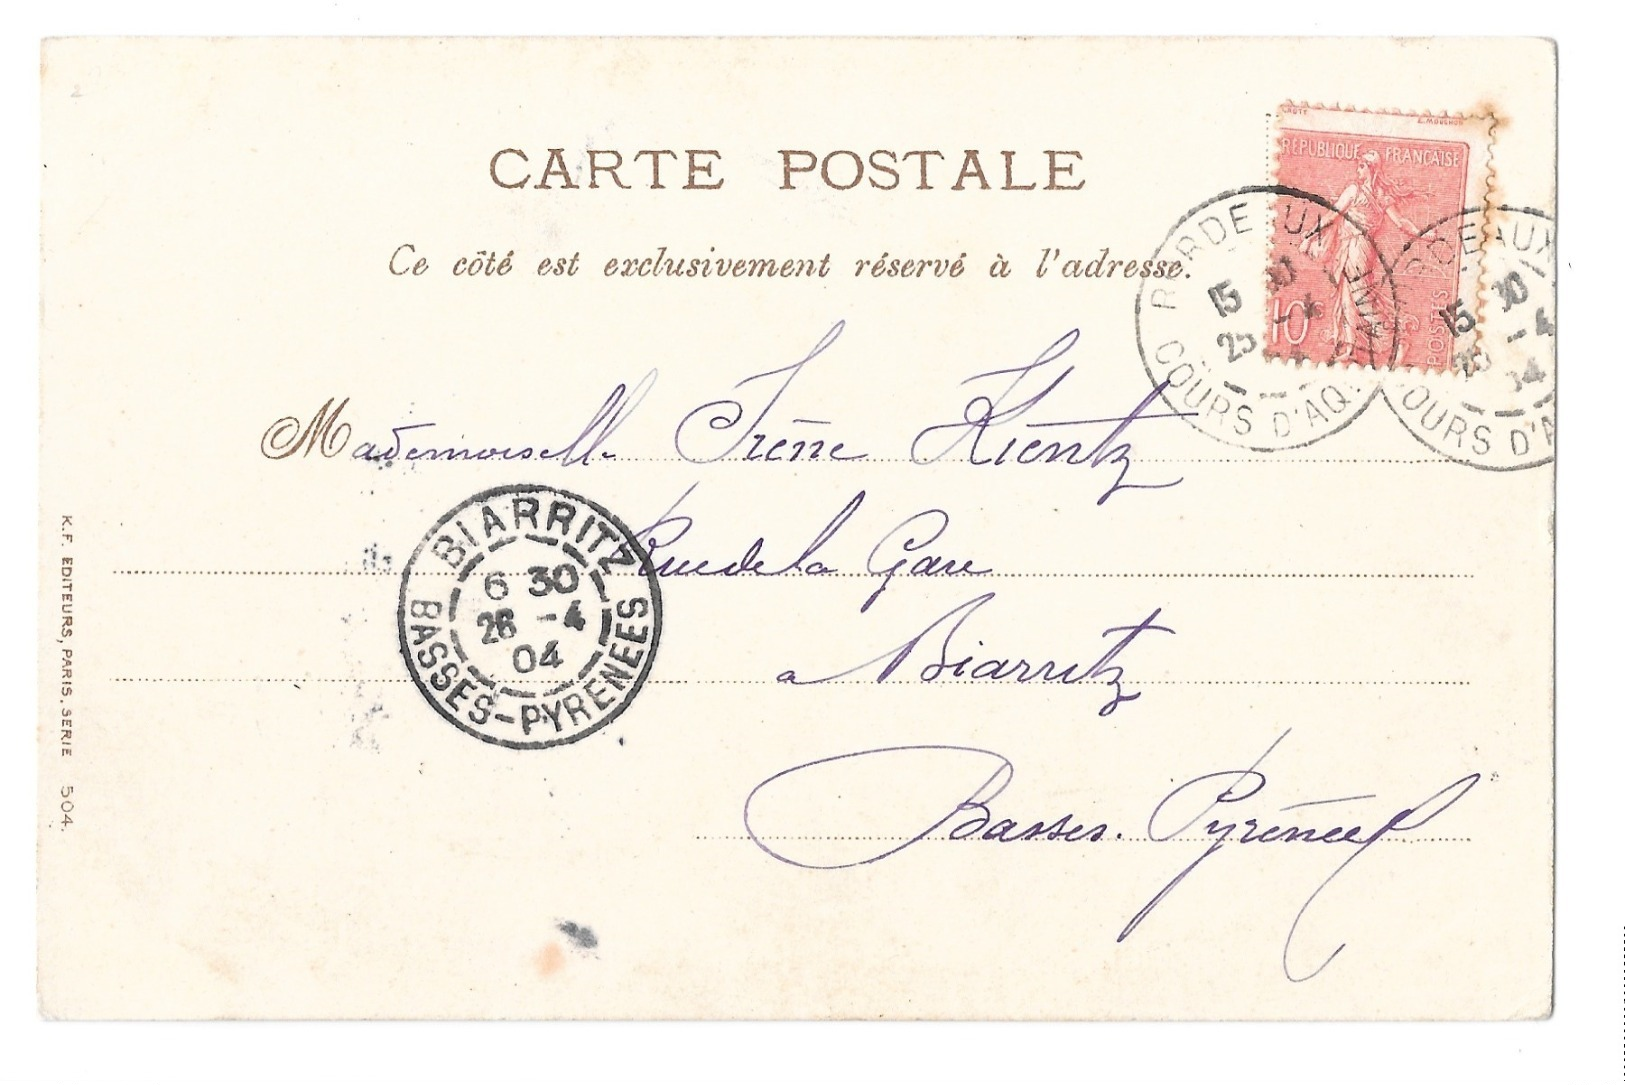 CARTE POSTALE
Ce côté est exclusivement réservé à l'adresse.
CROTY
E. MOUCHON
REPUBLIQUE FRANÇAISE
10c
POSTES
BORDEAUX
15 30
25 -4
COURS D'AQ.
BORDEAUX
15 30
25 -4
04
COURS D'A
Mademoiselle Irène Kientz
Rue de la Gare
a Biarritz
Basses-Pyrénées
BIARRITZ
6 30
26 -4
04
BASSES-PYRENEES
K.F. EDITEURS, PARIS, SERIE 504.